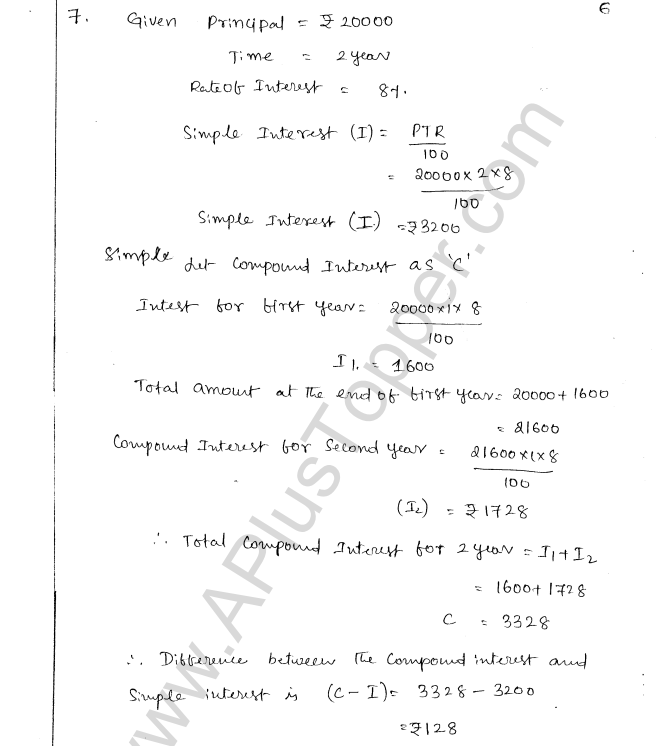 6
7. Given Principal = ₹ 20000
Time = 2 year
Rate of Interest = 8%.
Simple Interest (I) = PTR
100
= 20000 x 2 x 8
100
Simple Interest (I) = ₹ 3200
Simple Let Compound Interest as 'C'
Intest for first year = 20000 x 1 x 8
100
I1. = 1600
Total amount at the end of first year = 20000 + 1600
= 21600
Compound Interest for Second year = 21600 x 1 x 8
100
(I2) = ₹ 1728
∴ Total Compound Interest for 2 year = I1 + I2
= 1600 + 1728
C = 3328
∴ Difference between the compound interest and
Simple interest is (C - I) = 3328 - 3200
= ₹ 128
www.APlusTopper.com